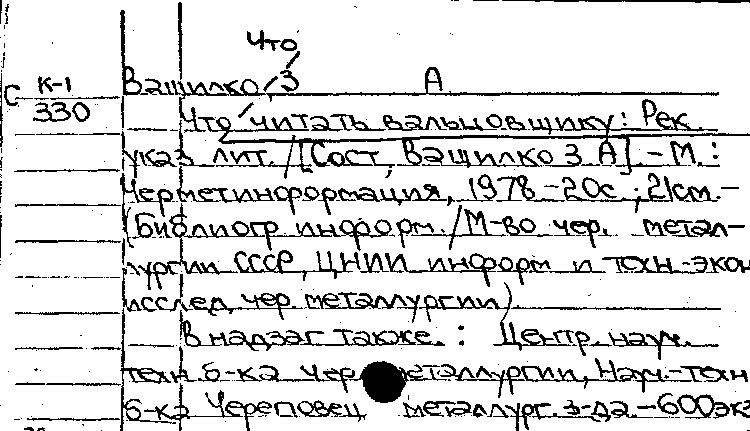 Что
С К-1 Ващилко, З А
330 Что читать вальцовщику: Рек.
указ лит. / [Сост, Ващилко З. А]. - М. :
Черметинформация, 1978 - 20с ; 21см. -
(Библиогр информ. / М-во чер. метал-
лургии СССР, ЦНИИ информ и техн-экон
исслед чер. металлургии)
В надзаг также. : Центр. науч.
техн б-ка чер металлургии, Науч.-техн
б-ка Череповец металлург. з-да. - 600экз